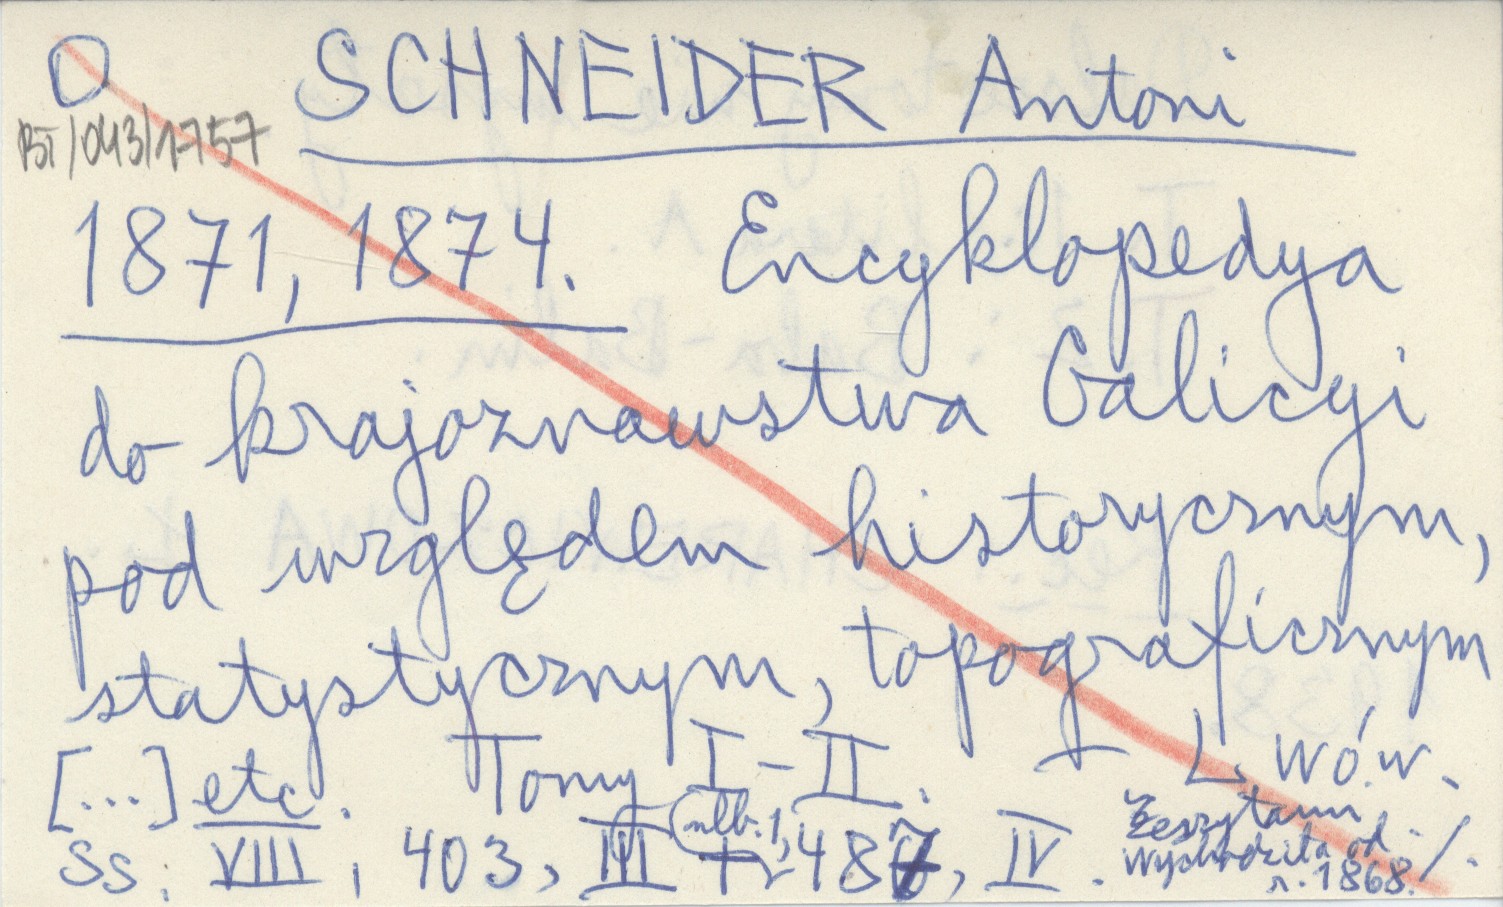 O SCHNEIDER Antoni
BJ/043/1757
1871, 1874. Encyklopedya
do krajoznawstwa Galicyi
pod względem historycznym,
statystycznym, topograficznym
[...] etc. Tomy I-II. – Lwów.
Ss. VIII, 403, III + nlb. 1, 487, IV.
Zeszytami
wychodziła od
r. 1868. ./.